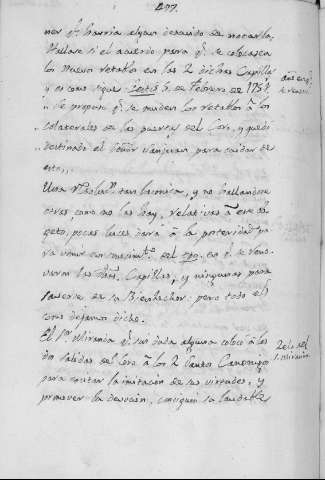 497.
ner qe. havria algun descuido de notarlo.
Hallase si el acuerdo para qe. se colocasen
los nuevos retablos en las 2 dichas Capillas
y es como sigue: Lectis 5. de Febrero de 1754
"Se propuso qe. se muden los retablos à los
"colaterales de las puertas del Coro, y quedó
"destinado el Señor Sanjuan para cuidar de
esto,,.
Una tan laconica, y no hallandose
otras como no las hay, relativas à este ob-
geto, pocas luces dará à la posteridad pa-
ra venir en conocimto. del tpo. en qe. se reno-
varon las Capillas, y ningunas para
saverse de su Bienhechor: pero todo es
como dejamos dicho.
El Sr. Miranda qe. sin duda alguna colocó à las
dos salidas del Coro à los 2 Santos Canonigos
para excitar la imitación de sus virtudes, y
promover la devoción, consiguió su laudable
Zelo del
Sr. Miranda